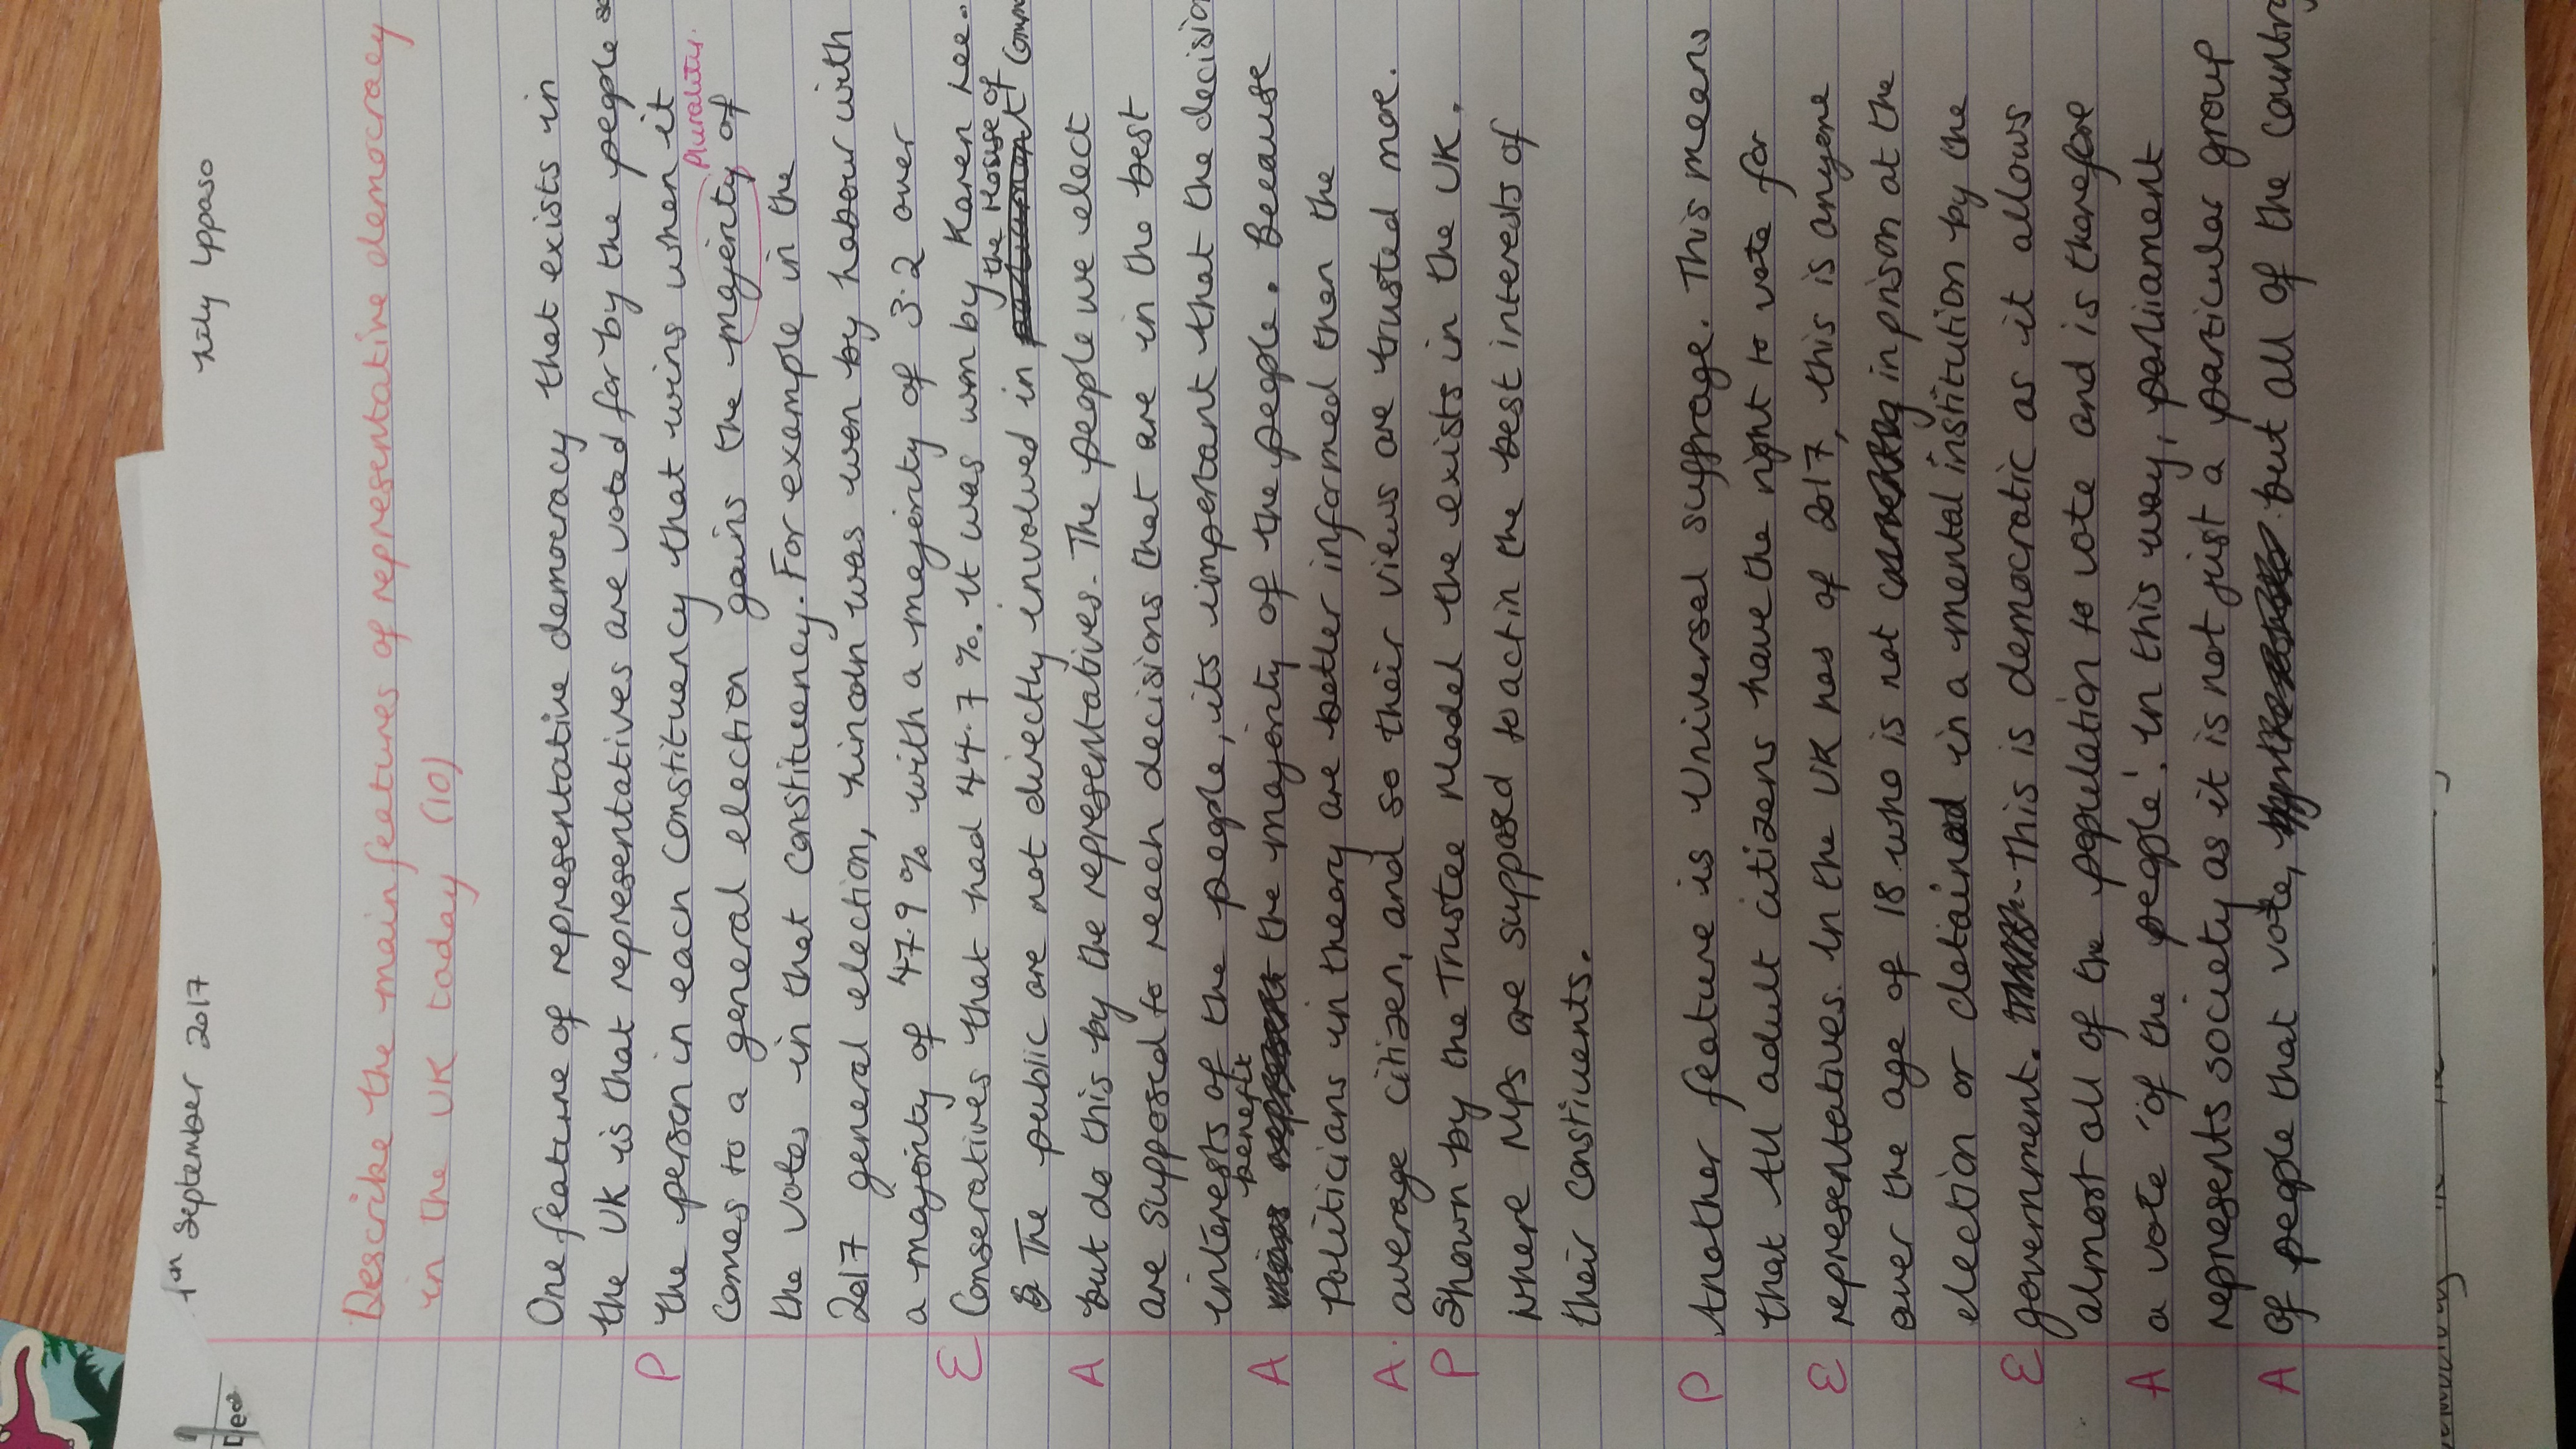 1st September 2017
Lily Ippaso
Describe the main features of representative democracy
in the UK today (10)
One feature of representative democracy that exists in
the UK is that representatives are voted for by the people so
P the person in each constituency that wins when it
comes to a general election gains the majority of
Plurality.
the votes in that constituency. For example in the
2017 general election, Lincoln was won by Labour with
a majority of 47.9% with a majority of 3.2 over
E Conseratives that had 44.7%. It was won by Karen Lee.
The public are not directly involved in the House of
A but do this by the representatives. The people we elect
are supposed to reach decisions that are in the best
interests of the people, its important that the decision
A benefit the majority of the people. Because
Politicians in theory are better informed then the
A. average citizen, and so their views are trusted more.
P Shown by the Trustee Model the exists in the UK.
Where MPs are supposed to act in the best interests of
their constiuents.
P Another feature is Universal suffrage. This means
that All adult citizens have the right to vote for
E representatives. In the UK nes of 2017, this is anyone
over the age of 18 who is not in prison at the
election or detained in a mental institution by the
E government. This is democratic as it allows
almost all of the population to vote and is therefore
A a vote 'of the people'. In this way, parliament
represents society as it is not just a particular group
A of people that vote, but all of the country